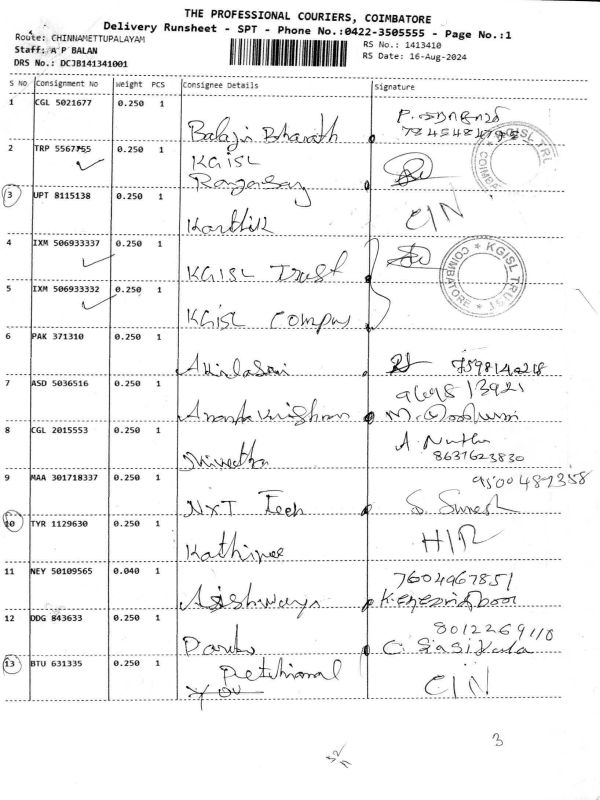 THE PROFESSIONAL COURIERS, COIMBATORE
Delivery Runsheet - SPT - Phone No.:0422-3505555 - Page No.:1
Route: CHINNAMETTUPALAYAM
Staff: A P BALAN
DRS No.: DCJB141341001
RS No.: 1413410
RS Date: 16-Aug-2024
S No. Consignment No Weight PCS Consignee Details Signature
1 CGL 5021677 0.250 1 Balaji Bharath
2 TRP 5567755 0.250 1 KGISL
3 UPT 8115138 0.250 1 Karthik CIN
4 IXM 506933337 0.250 1 KGISL Trust
KGISL TRUST * COIMBATORE *
5 IXM 506933332 0.250 1 KGISL Compus
6 PAK 371310 0.250 1 Akilasri 7598140218
7 ASD 5036516 0.250 1 Ananda Krishnan 9698713921
8 CGL 2015553 0.250 1 Nivedha 8631623830
9 MAA 301718337 0.250 1 NXT Tech 9500487358
S. Suresh
10 TYR 1129630 0.250 1 HIR
11 NEY 50109565 0.040 1 Aishwarya 7604967851
12 DDG 843633 0.250 1 8012269110
C. Sasikala
13 BTU 631335 0.250 1 CIN
3